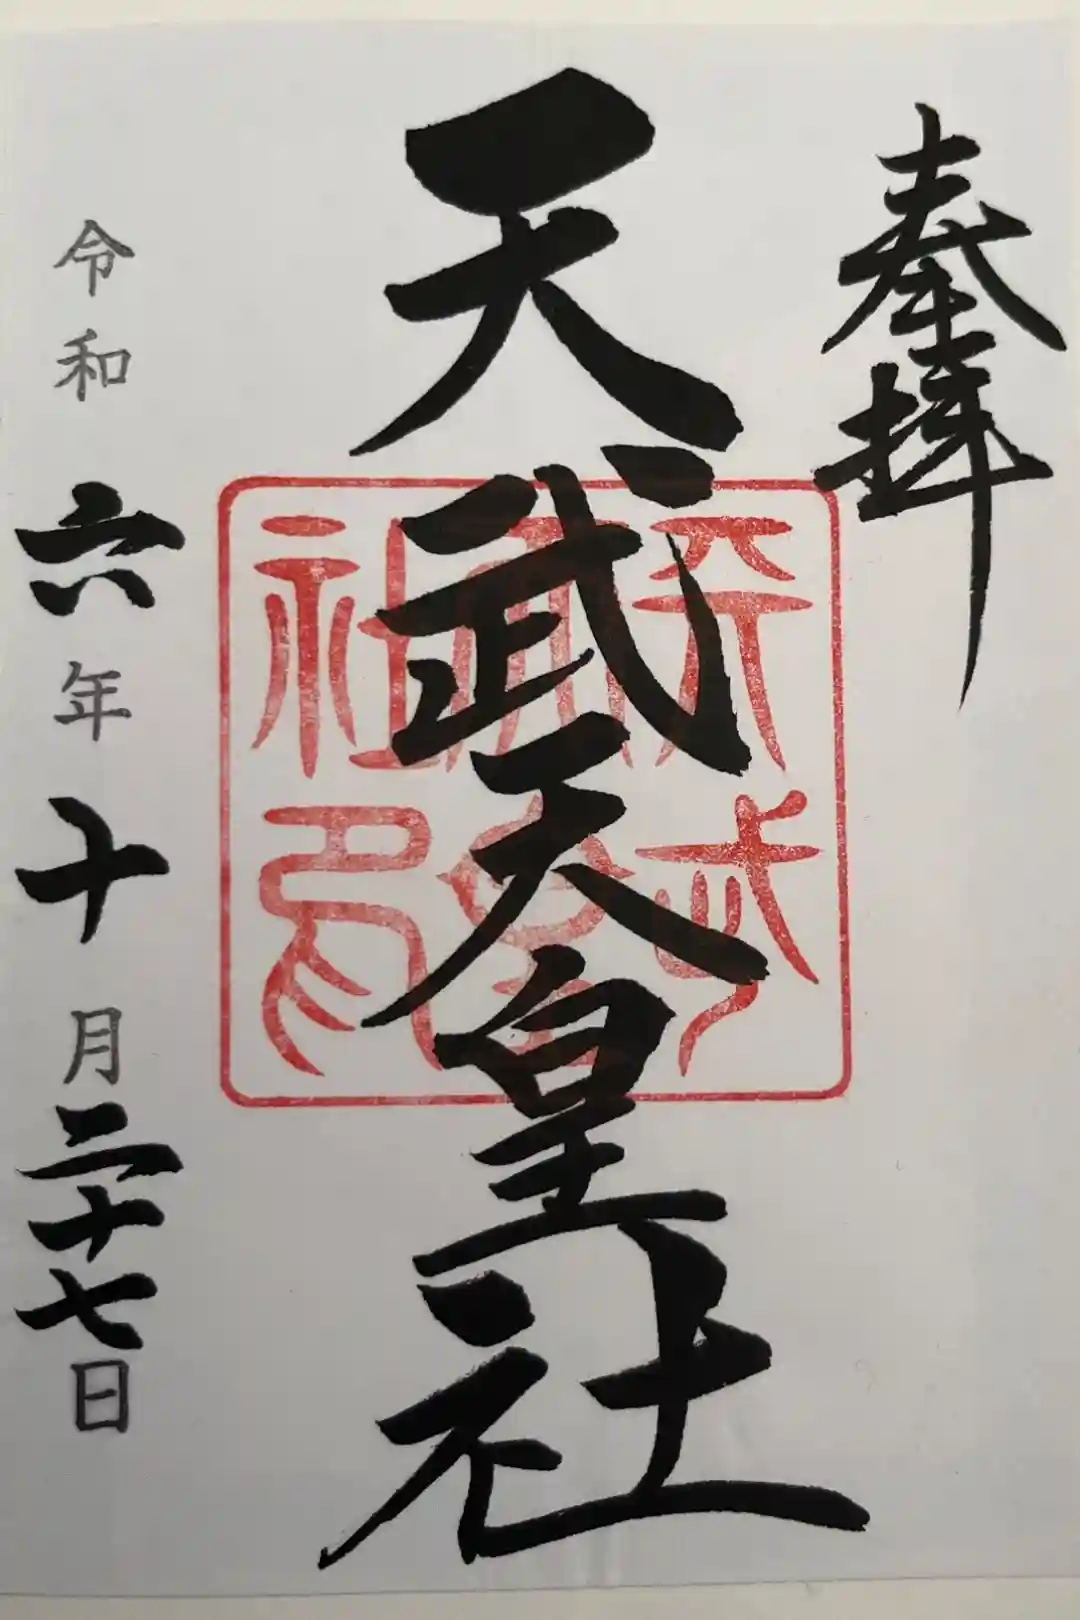 奉拝
天武天皇社
天武天皇社印
令和六年十月二十七日